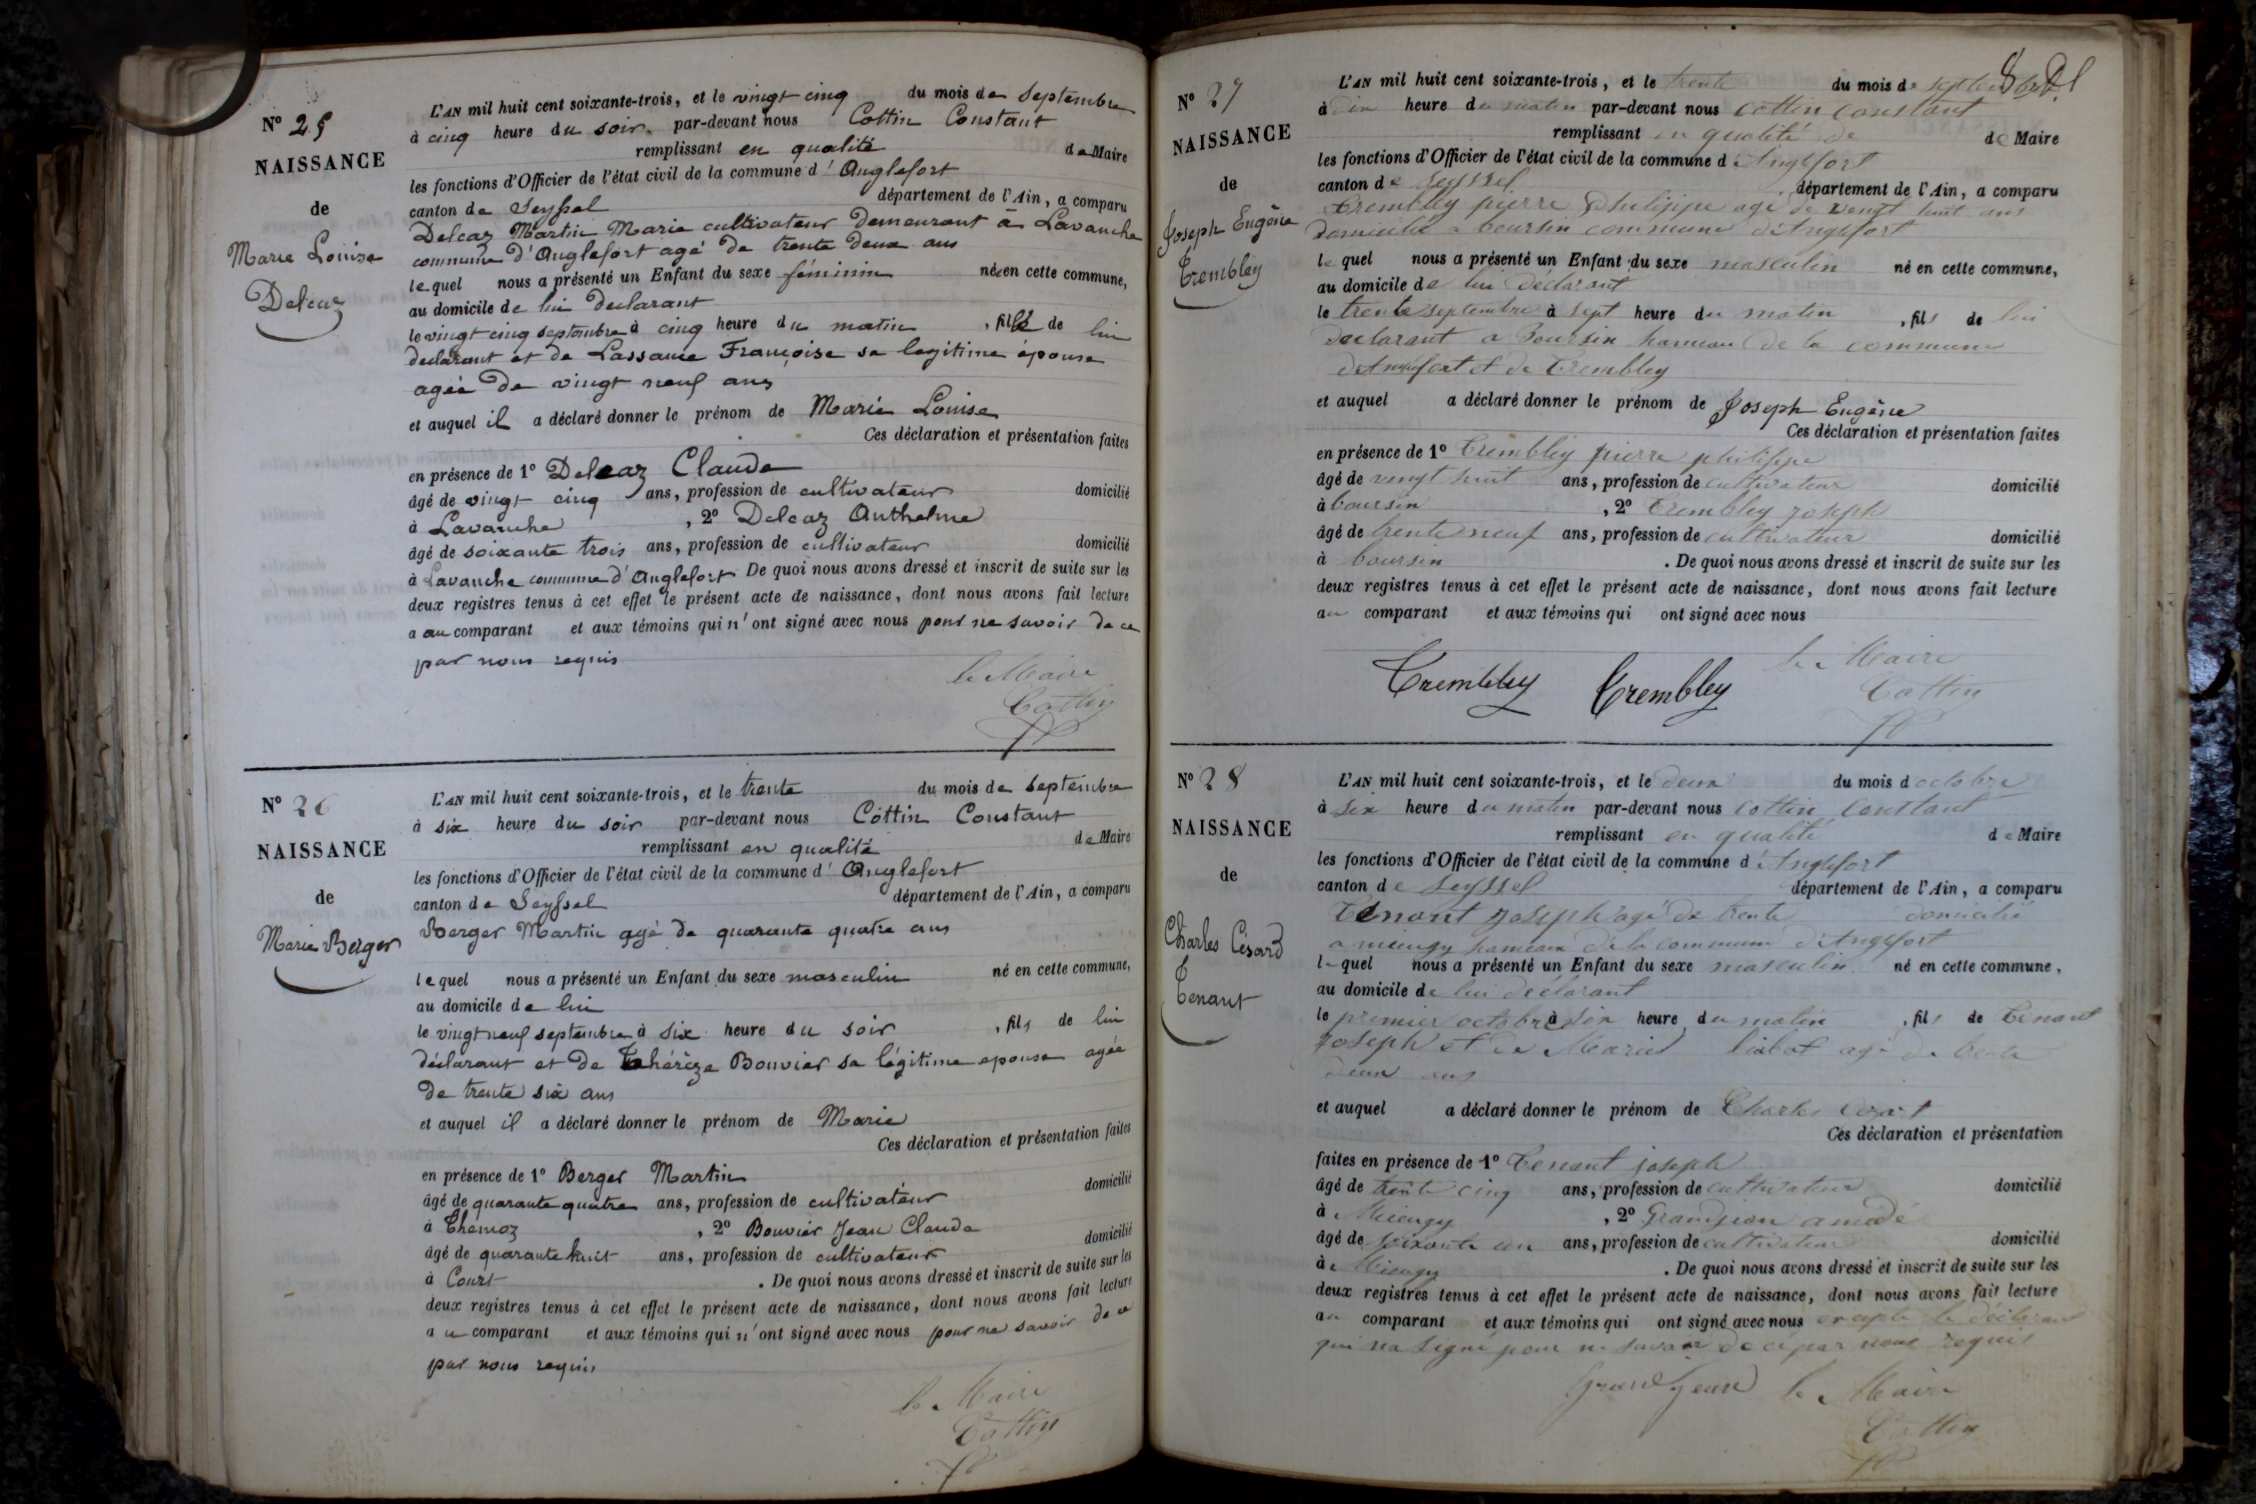 N° 25
NAISSANCE
de
Marie Louise
Delcaz
L'AN mil huit cent soixante-trois, et le vingt cinq du mois de septembre
à cinq heure du soir par-devant nous Cottin Constant
remplissant en qualité de Maire
les fonctions d'Officier de l'état civil de la commune d'Anglefort
canton de Seyssel département de l'Ain, a comparu
Delcaz Martin Marie cultivateur demeurant à Lavanche
commune d'Anglefort agé de trente deux ans
lequel nous a présenté un Enfant du sexe féminin née en cette commune,
au domicile de lui declarant
le vingt cinq septembre à cinq heure du matin, fille de lui
declarant et de Françoise sa legitime épouse
agée de vingt neuf ans
et auquel il a déclaré donner le prénom de Marie Louise
Ces déclaration et présentation faites
en présence de 1° Delcaz Claude
âgé de vingt cinq ans, profession de cultivateur domicilié
à Lavanche, 2° Delcaz Anthelme
âgé de soixante trois ans, profession de cultivateur domicilié
à Lavanche commune d'Anglefort De quoi nous avons dressé et inscrit de suite sur les
deux registres tenus à cet effet le présent acte de naissance, dont nous avons fait lecture
a au comparant et aux témoins qui n'ont signé avec nous pour ne savoir de ce
par nous requis
le Maire
Cottin
N° 26
NAISSANCE
de
Marie Berger
L'AN mil huit cent soixante-trois, et le trente du mois de septembre
à six heure du soir par-devant nous Cottin Constant
remplissant en qualité de Maire
les fonctions d'Officier de l'état civil de la commune d'Anglefort
canton de Seyssel département de l'Ain, a comparu
Berger Martin agé de quarante quatre ans
lequel nous a présenté un Enfant du sexe masculin né en cette commune,
au domicile de lui
le vingt neuf septembre à six heure du soir, fils de lui
déclarant et de Thérèze Bouvier sa légitime epouse agée
de trente six ans
et auquel il a déclaré donner le prénom de Marie
Ces déclaration et présentation faites
en présence de 1° Berger Martin
âgé de quarante quatre ans, profession de cultivateur domicilié
à, 2° Bouvier Jean Claude
âgé de quarante huit ans, profession de cultivateur domicilié
à Court. De quoi nous avons dressé et inscrit de suite sur les
deux registres tenus à cet effet le présent acte de naissance, dont nous avons fait lecture
au comparant et aux témoins qui n'ont signé avec nous pour ne savoir de ce
par nous requis
le Maire
Cottin
N° 27
NAISSANCE
de
Joseph Eugène
Trembley
L'AN mil huit cent soixante-trois, et le trente du mois de septembre
à dix heure du matin par-devant nous Cottin Constant
remplissant en qualité de de Maire
les fonctions d'Officier de l'état civil de la commune d'Anglefort
canton de Seyssel département de l'Ain, a comparu
Trembley pierre philippe agé de vingt huit ans
domicilié a boursin commune d'Anglefort
lequel nous a présenté un Enfant du sexe masculin né en cette commune,
au domicile de lui déclarant
le trente septembre à sept heure du matin, fils de lui
declarant a Boursin hameau de la commune
d'Anglefort et de Trembley
et auquel a déclaré donner le prénom de Joseph Eugène
Ces déclaration et présentation faites
en présence de 1° Trembley pierre philippe
âgé de vingt huit ans, profession de cultivateur domicilié
à boursin, 2° Trembley joseph
âgé de trente neuf ans, profession de cultivateur domicilié
à boursin. De quoi nous avons dressé et inscrit de suite sur les
deux registres tenus à cet effet le présent acte de naissance, dont nous avons fait lecture
au comparant et aux témoins qui ont signé avec nous
Trembley Trembley le Maire
Cottin
N° 28
NAISSANCE
de
Charles Césard
Tenant
L'AN mil huit cent soixante-trois, et le deux du mois d octobre
à six heure du matin par-devant nous Cottin Constant
remplissant en qualité de Maire
les fonctions d'Officier de l'état civil de la commune d'Anglefort
canton de Seyssel département de l'Ain, a comparu
Tenant joseph agé de trente domicilié
a mieugy hameau de la commune d'Anglefort
lequel nous a présenté un Enfant du sexe masculin né en cette commune,
au domicile de lui déclarant
le premier octobre à six heure du matin, fils de Tenant
joseph et de Marie agé de trente
deux ans
et auquel a déclaré donner le prénom de Charles
Ces déclaration et présentation
faites en présence de 1° Tenant joseph
âgé de trente cinq ans, profession de cultivateur domicilié
à Mieugy, 2° Grandjean amédé
âgé de soixante un ans, profession de cultivateur domicilié
à Mieugy. De quoi nous avons dressé et inscrit de suite sur les
deux registres tenus à cet effet le présent acte de naissance, dont nous avons fait lecture
au comparant et aux témoins qui ont signé avec nous excepté le déclarant
qui n'a signé pour ne savoir de ce par nous requis
Grandjean le Maire
Cottin